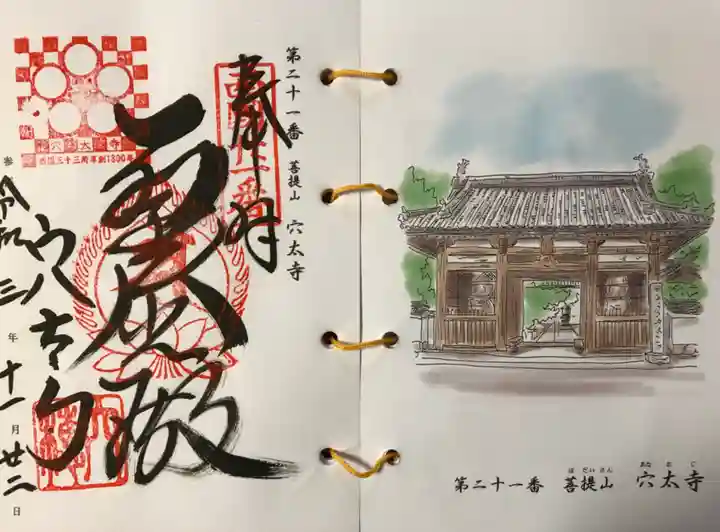 第二十一番 菩提山 穴太寺
奉拝
西国廿一番
聖大悲殿
穴太寺
西国三十三所草創1300年
穴太寺
参
令和三年十一月廿二日
ぼだいさん あなおじ
第二十一番 菩提山 穴太寺